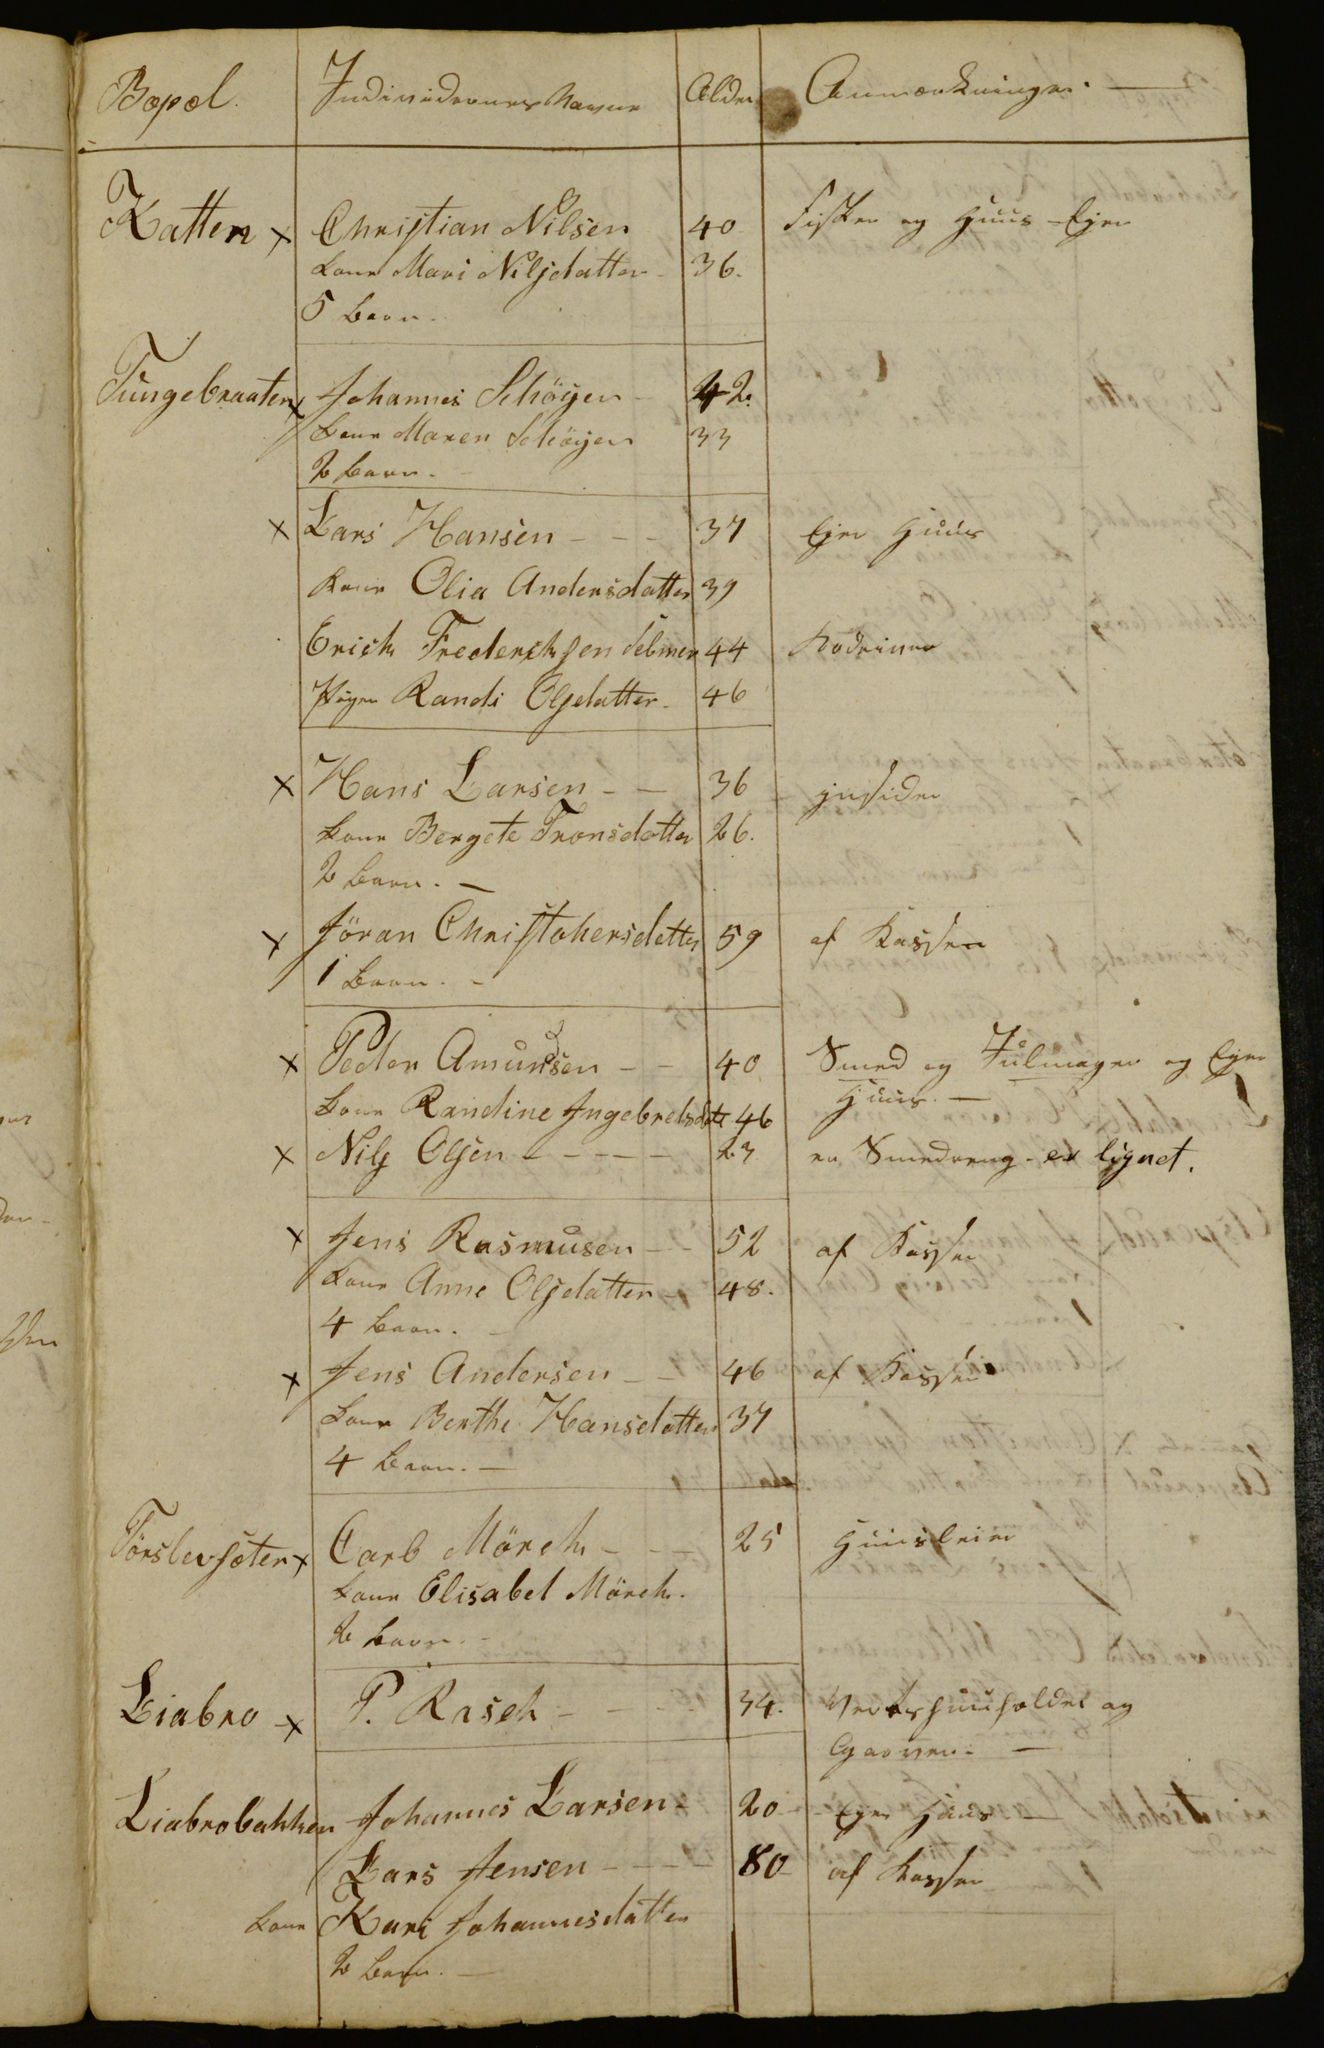 Bopæl. Individernes Navne Alder Anmærkninger.
Katten x Christian Nilsen 40 Fisker og Huus-Ejer
Kone Mari Nilsdatter 36.
5 Børn.
Tungebraaten x Johannes Schöyen 42.
Kone Maren Schöyen 33
2 Børn.
x Lars Hansen 37 Ejer Huus
Kone Olia Andersdatter 39
Erich Frederichsen Selmer 44
Pigen Randi Olsdatter 46
x Hans Larsen 36 Insider
Kone Bergete Tronsdatter 26.
2 Børn.
x Jöran Christophersdatter 59 af Kassen
1 Barn.
x Peder Amundsen 40 Smed og Hiulmager og Ejer
Kone Randine Ingebretsdatter 46 Huus.
x Nils Olsen 23 en Smedreng - er lignet.
x Jens Rasmusen 52 af Kassen
Kone Anne Olsdatter 48.
4 Børn.
x Jens Andersen 46 af Kassen
Kone Berthe Hansdatter 37
4 Børn.
Törslevsöter x Carl Mörch 25 Huusleier
Kone Elisabet Mörch.
2 Børn.
Liabro x P. Rasch 34. Vertshuusholder og
Garver.
Liabrobakken Johannes Larsen 20 Ejer Huus
Lars Jensen 80 af Kassen
Kone Kari Johannesdatter
2 Børn.